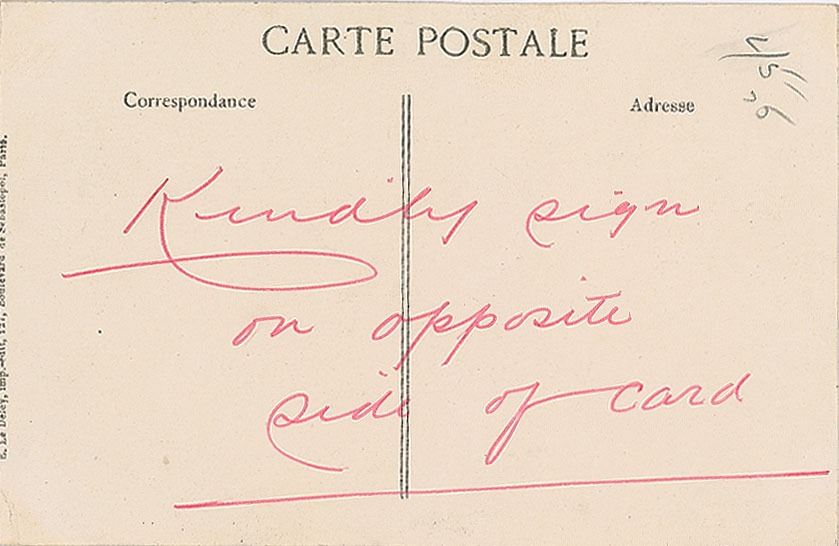 CARTE POSTALE
Correspondance
Adresse
Kindly sign
on opposite
side of card
E. Le Deley, imp.-édit, 127, Boulevard de Sébastopol, Paris.